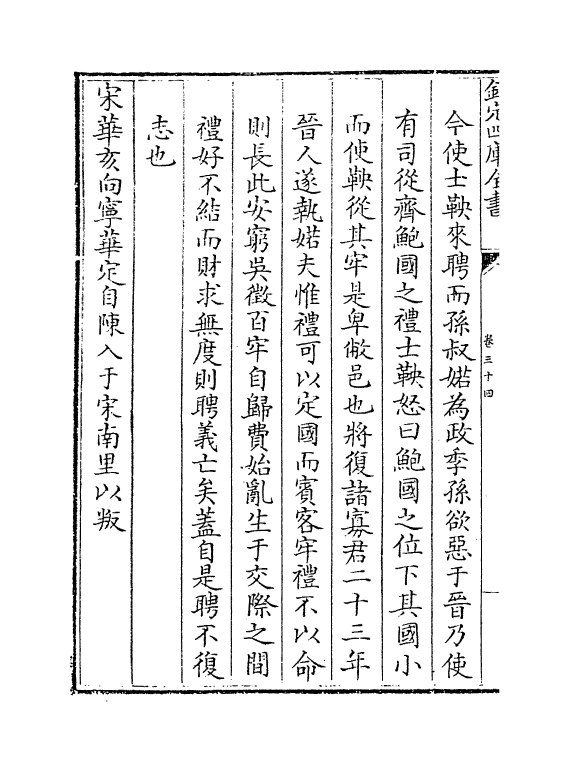 欽定四庫全書
卷三十四
今使士鞅來聘而孫叔婼為政季孫欲惡于晉乃使
有司從齊鮑國之禮士鞅怒曰鮑國之位下其國小
而使鞅從其牢是卑敝邑也將復諸寡君二十三年
晉人遂執婼夫惟禮可以定國而賓客牢禮不以命
則長此安窮吳徵百牢自歸費始亂生于交際之間
禮好不結而財求無度則聘義亡矣蓋自是聘不復
志也
宋華亥向寧華定自陳入于宋南里以叛